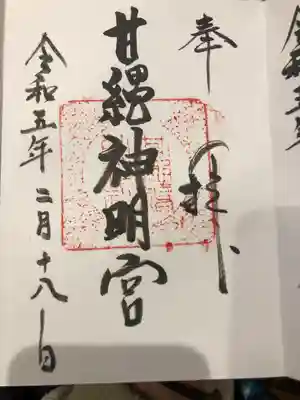 奉拝
甘縄神明宮
令和五年二月十八日